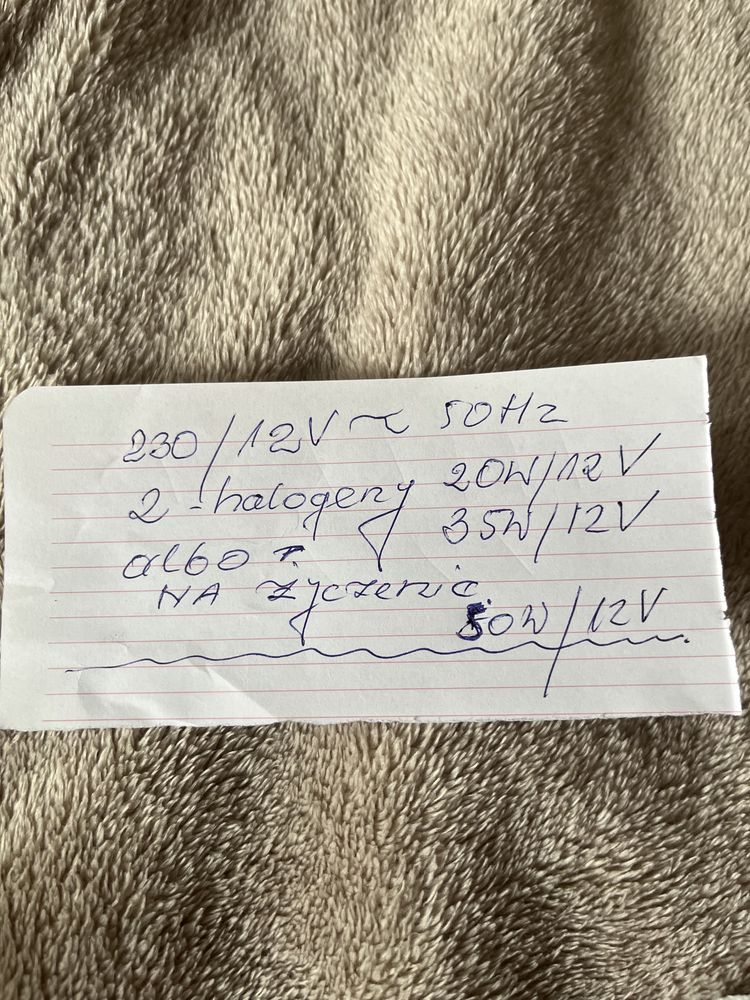 230/12V ~ 50Hz
2 - halogeny 20W/12V
albo 35W/12V
NA życzenie
50W/12V